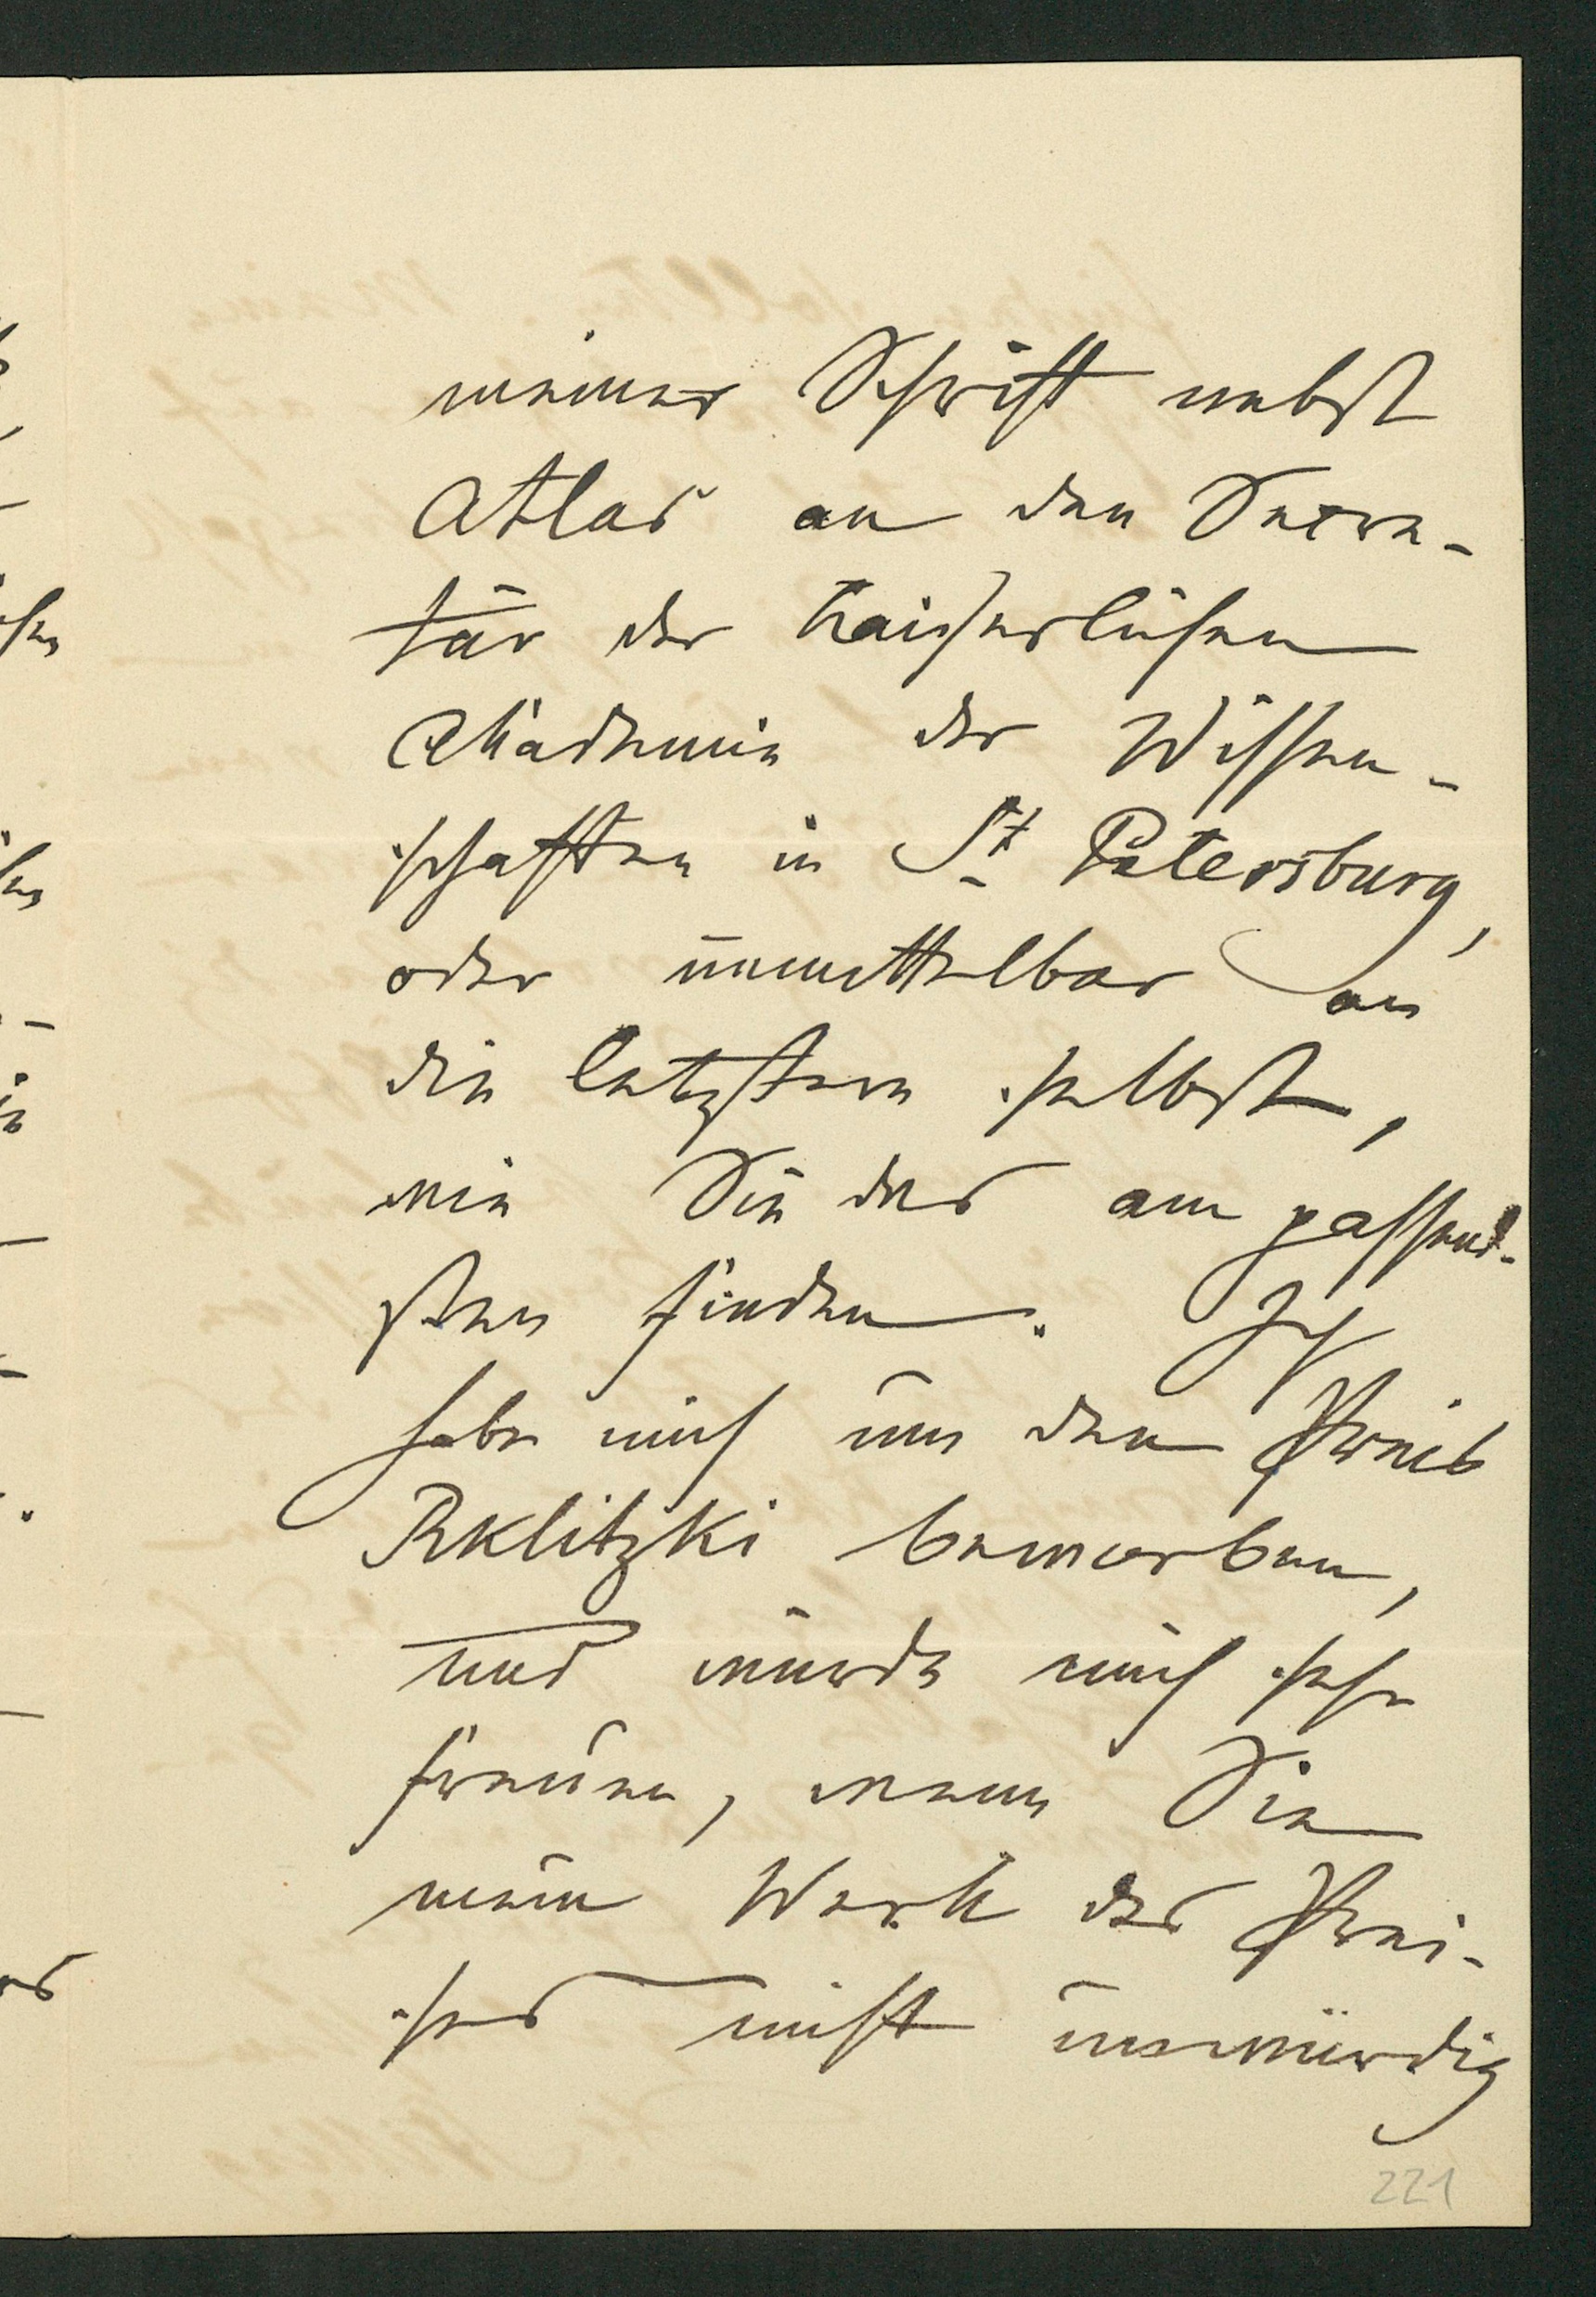 meiner Schrift nebst
Atlas an den Secre-
tär der Kaiserlichen
Akademie der Wissen-
schaften in St Petersburg,
oder unmittelbar an
die letztere selbst,
wie Sie das am passend-
sten finden. Ich
habe mich um den Preis
Rklitzki beworben,
und würde mich sehr
freuen, wenn Sie
mein Werk des Prei-
ses nicht unwürdig
221